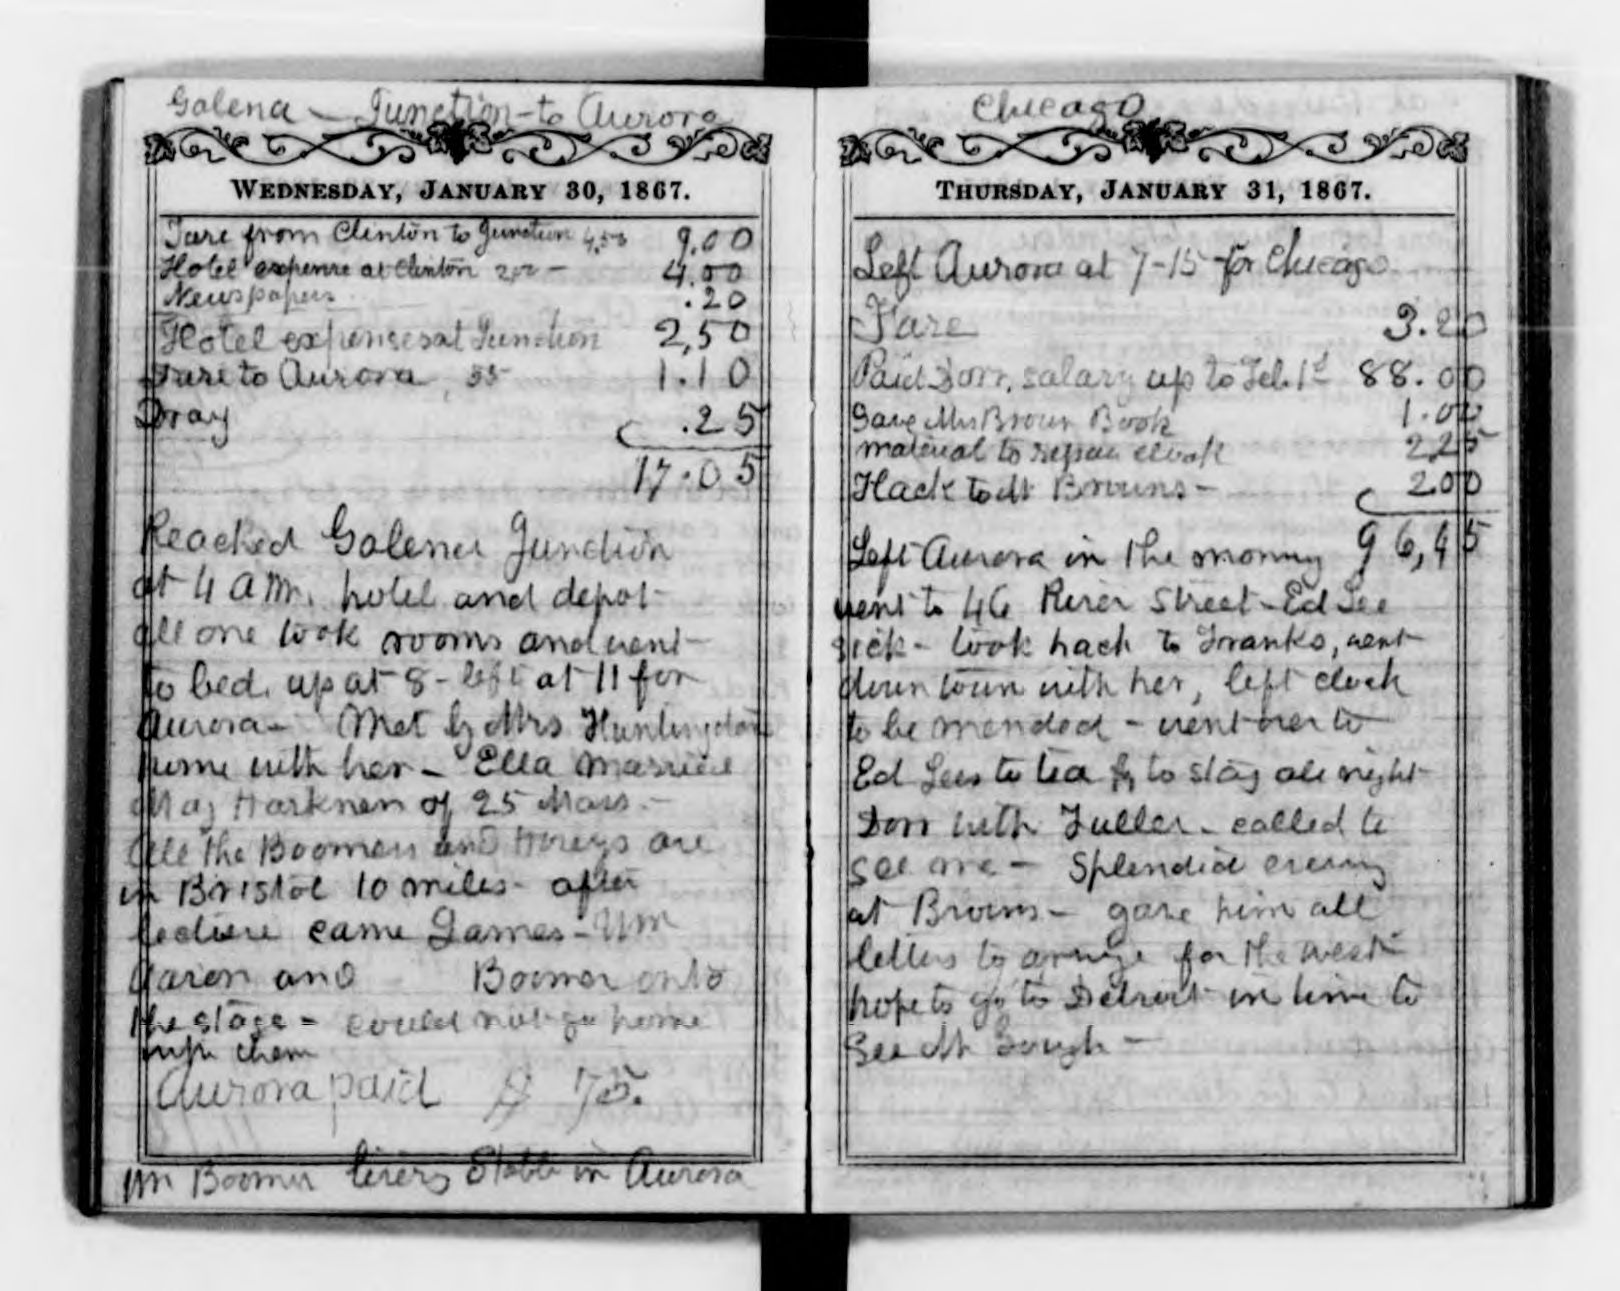 Galena - Junction - to Aurora
WEDNESDAY, JANUARY 30, 1867.
Fare from Clinton to Junction 4,50 9.00
Hotel expense at Clinton 2,00 - 4.00
Newspapers .20
Hotel expenses at Junction 2,50
Fare to Aurora, 55 1.10
Dray .25
17.05
Reached Galena Junction
at 4 A M. hotel and depot
all one took rooms and went
to bed. up at 8 - left at 11 for
Aurora - Met by Mrs Huntingdon
home with her - Ella married
Maj Harknen of 25 Mass. -
All the Boomers and are
in Bristol 10 miles - after
lecture came James - Wm
Aaron and Boomer onto
the stage - could not go home
with them
Aurora paid $ 75.
Wm Boomer livery Stable in Aurora
Chicago
THURSDAY, JANUARY 31, 1867.
Left Aurora at 7-15 for Chicago
Fare 3.20
Paid Dorr, salary up to Feb. 1st 88.00
Gave Mrs Brown Book 1.00
material to repair cloak 225
Hack to Mr Browns - 200
Left Aurora in the morning 96,45
went to 46 River Street - Ed Lee
sick - took hack to Franks, went
down town with her, left clock
to be mended - went over to
Ed Lees to tea & to stay all night
Dorr with Fuller - called to
see me - Splendid evening
at Browns - gave him all
letters to arrange for the west
hope to go to Detroit in time to
See Mr Gough -